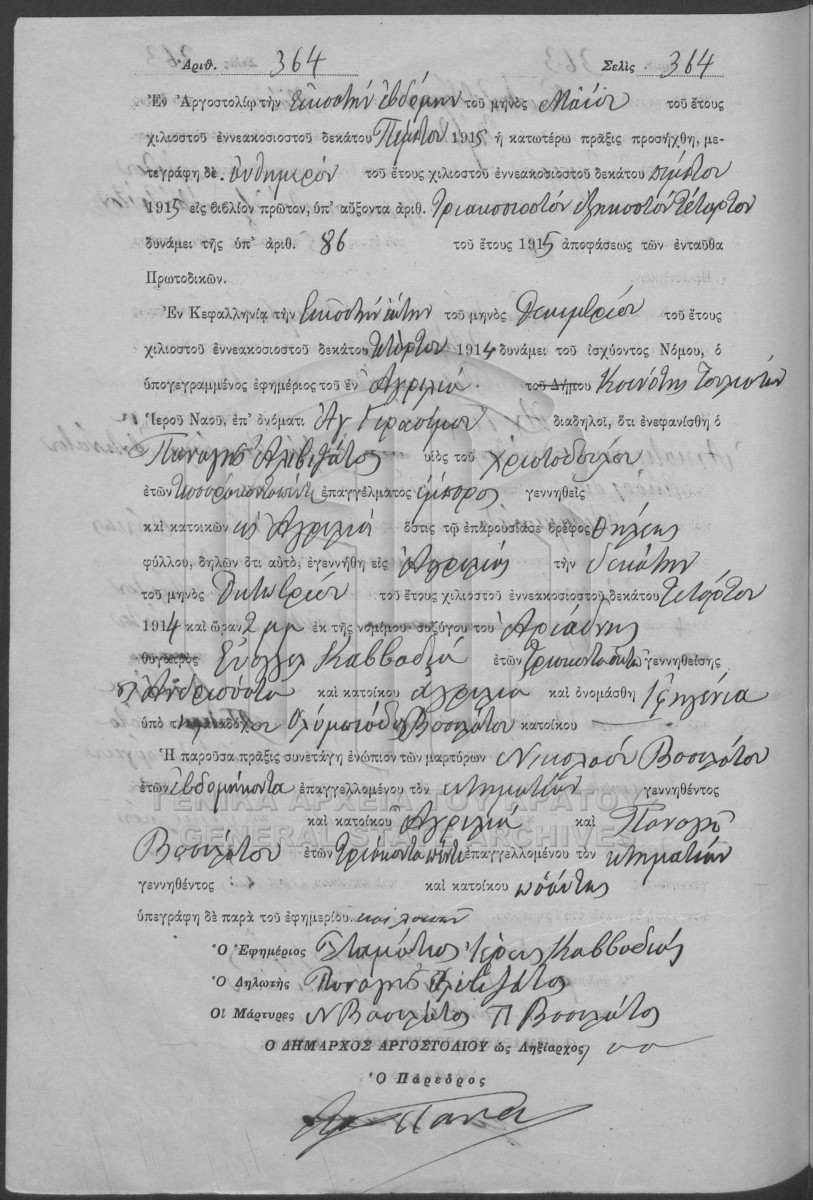 Ἀριθ. 364 Σελὶς 364
Ἐν Ἀργοστολίῳ τὴν Εἰκοστὴν ἑβδόμην τοῦ μηνὸς Μαΐου τοῦ ἔτους
χιλιοστοῦ ἐννεακοσιοστοῦ δεκάτου Πέμπτου 1915 ἡ κατωτέρω πρᾶξις προσήχθη, με-
τεγράφη δὲ αὐθημερόν τοῦ ἔτους χιλιοστοῦ ἐννεακοσιοστοῦ δεκάτου πέμπτου
1915 εἰς βιβλίον πρῶτον, ὑπ' αὔξοντα ἀριθ. τριακοσιοστόν ἑξηκοστόν τέταρτον
δυνάμει τῆς ὑπ' ἀριθ. 86 τοῦ ἔτους 1915 ἀποφάσεως τῶν ἐνταῦθα
Πρωτοδικῶν.
Ἐν Κεφαλληνίᾳ τὴν Εἰκοστὴν ἕκτην τοῦ μηνὸς Δεκεμβρίου τοῦ ἔτους
χιλιοστοῦ ἐννεακοσιοστοῦ δεκάτου τετάρτου 1914 δυνάμει τοῦ ἰσχύοντος Νόμου, ὁ
ὑπογεγραμμένος ἐφημέριος τοῦ ἐν Ἀγριλιά τοῦ Δήμου Κοινότης
Ἱεροῦ Ναοῦ, ἐπ' ὀνόματι Ἁγ Γερασίμου διαδηλοῖ, ὅτι ἐνεφανίσθη ὁ
Παναγῆς Ἀλιβιζάτος υἱὸς τοῦ Χριστοδούλου
ἐτῶν τεσσαρακονταπέντε ἐπαγγέλματος ἔμπορος γεννηθεὶς
καὶ κατοικῶν εἰς Ἀγριλιά ὅστις τῷ ἐπαρουσίασε βρέφος θήλεως
φύλλου, δηλῶν ὅτι αὐτὸ, ἐγεννήθη εἰς Ἀγριλιάς τὴν δεκάτην
τοῦ μηνὸς Ὀκτωβρίου τοῦ ἔτους χιλιοστοῦ ἐννεακοσιοστοῦ δεκάτου τετάρτου
1914 καὶ ὥραν 2 μμ ἐκ τῆς νομίμου συζύγου του Ἀριάδνης
θυγατρὸς Καββαδία ἐτῶν γεννηθείσης
καὶ κατοίκου ἀγριλιά καὶ ὀνομάσθη Ἰφιγένια
ὑπὸ τ ἀναδόχου Ὀλυμπιάδος Βασιλάτου κατοίκου
Ἡ παροῦσα πρᾶξις συνετάγη ἐνώπιον τῶν μαρτύρων Νικολάου Βασιλάτου
ἐτῶν ἑβδομήκοντα ἐπαγγελλομένου τὸν κτηματίαν γεννηθέντος
καὶ κατοίκου Ἀγριλιά καὶ Παναγῆ
Βασιλάτου ἐτῶν τριάκοντα πέντε ἐπαγγελλομένου τὸν κτηματίαν
γεννηθέντος καὶ κατοίκου
ὑπεγράφη δὲ παρὰ τοῦ ἐφημερίου καὶ λοιπῶν
Ὁ Ἐφημέριος Σταμάτιος Ἱερεὺς Καββαδίας
Ὁ Δηλωτὴς Παναγῆς Ἀλιβιζάτος
Οἱ Μάρτυρες Ν Βασιλάτος Π Βασιλάτος
Ο ΔΗΜΑΡΧΟΣ ΑΡΓΟΣΤΟΛΙΟΥ ὡς Ληξίαρχος
Ὁ Πάρεδρος
ΓΕΝΙΚΑ ΑΡΧΕΙΑ ΤΟΥ ΚΡΑΤΟΥΣ
GENERAL STATE ARCHIVES